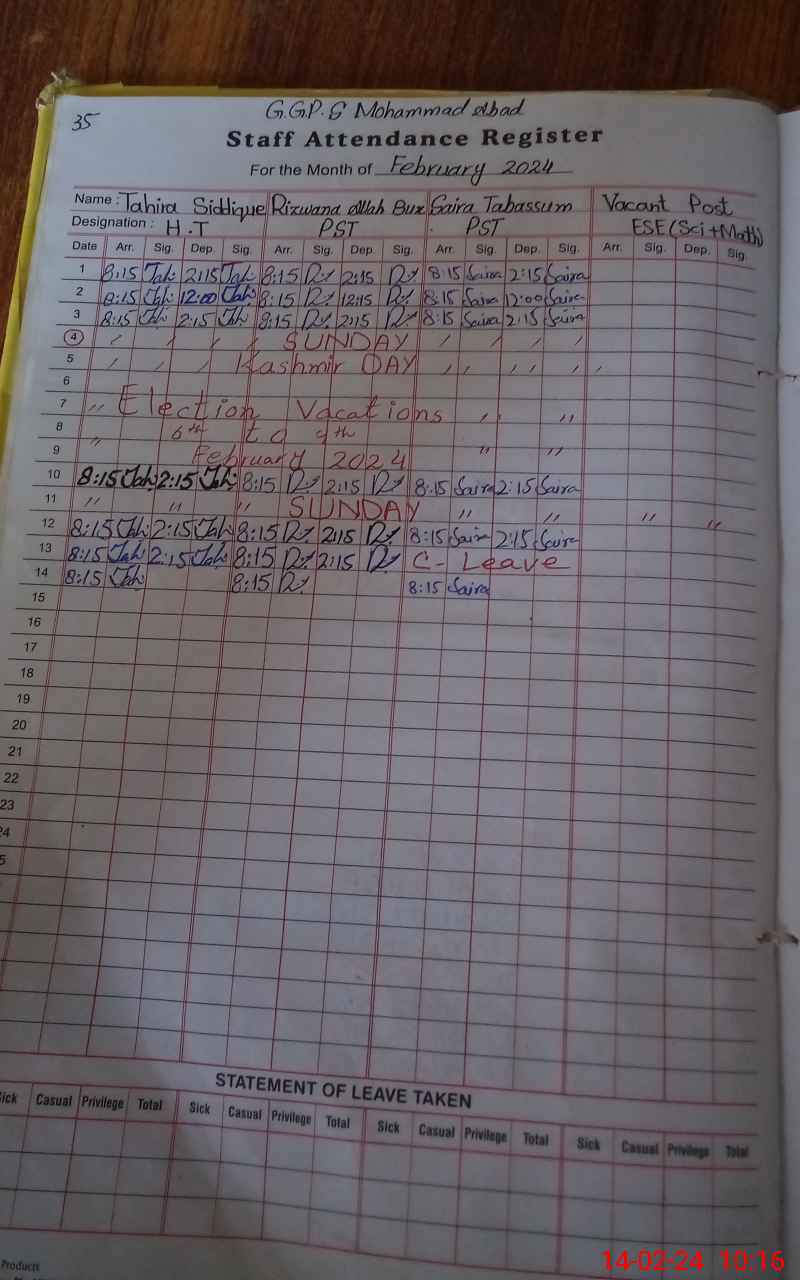 35
G.G.P.S Mohammad Abad
Staff Attendance Register
For the Month of February 2024
Name : Tahira Siddique Rizwana Allah Bux Saira Tabassum Vacant Post
Designation : H.T PST PST ESE(Sci+Math)
Date Arr. Sig. Dep. Sig. Arr. Sig. Dep. Sig. Arr. Sig. Dep. Sig. Arr. Sig. Dep. Sig.
1 8:15 Tah: 2:15 Tah: 8:15 2:15 8:15 Saira 2:15 Saira
2 8:15 Tah: 12:00 Tah: 8:15 12:15 8:15 Saira 12:00 Saira
3 8:15 Tah: 2:15 Tah: 8:15 2:15 8:15 Saira 2:15 Saira
4 SUNDAY
5 Kashmir DAY
6
7 " Election Vacations " "
8 " 6th to 9th
9 February 2024 " "
10 8:15 Tah: 2:15 Tah: 8:15 2:15 8:15 Saira 2:15 Saira
11 " " " SUNDAY " " " "
12 8:15 Tah: 2:15 Tah: 8:15 2:15 8:15 Saira 2:15 Saira
13 8:15 Tah: 2:15 Tah: 8:15 2:15 C- Leave
14 8:15 Tah: 8:15 8:15 Saira
15
16
17
18
19
20
21
22
23
24
5
STATEMENT OF LEAVE TAKEN
Sick Casual Privilege Total Sick Casual Privilege Total Sick Casual Privilege Total Sick Casual Privilege Total
Products
14-02-24 10:16